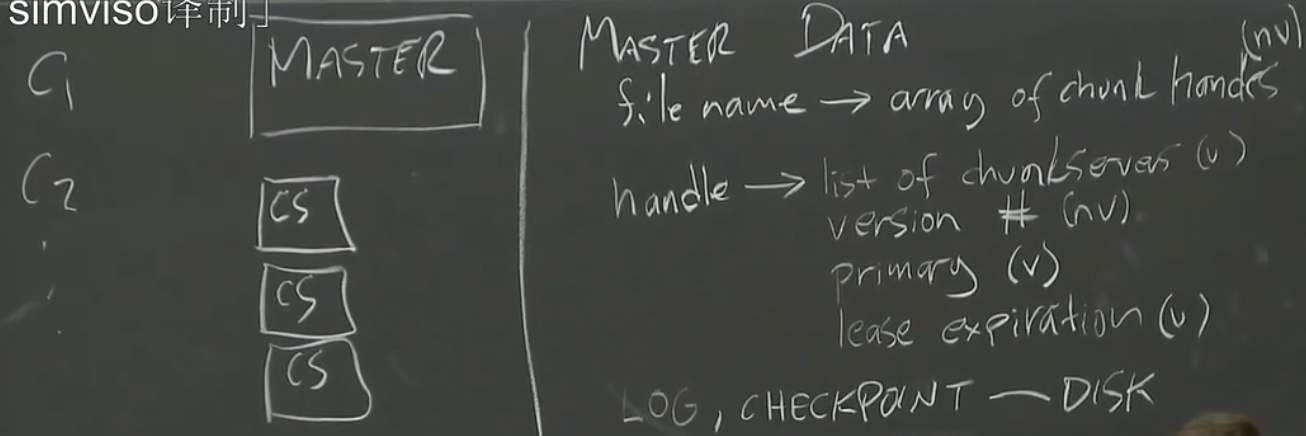 simviso译制」
C1
C2
MASTER
CS
CS
CS
MASTER DATA
(nv)
file name → array of chunk handes
handle → list of chunkservers (v)
version # (nv)
primary (v)
lease expiration (v)
LOG, CHECKPOINT — DISK